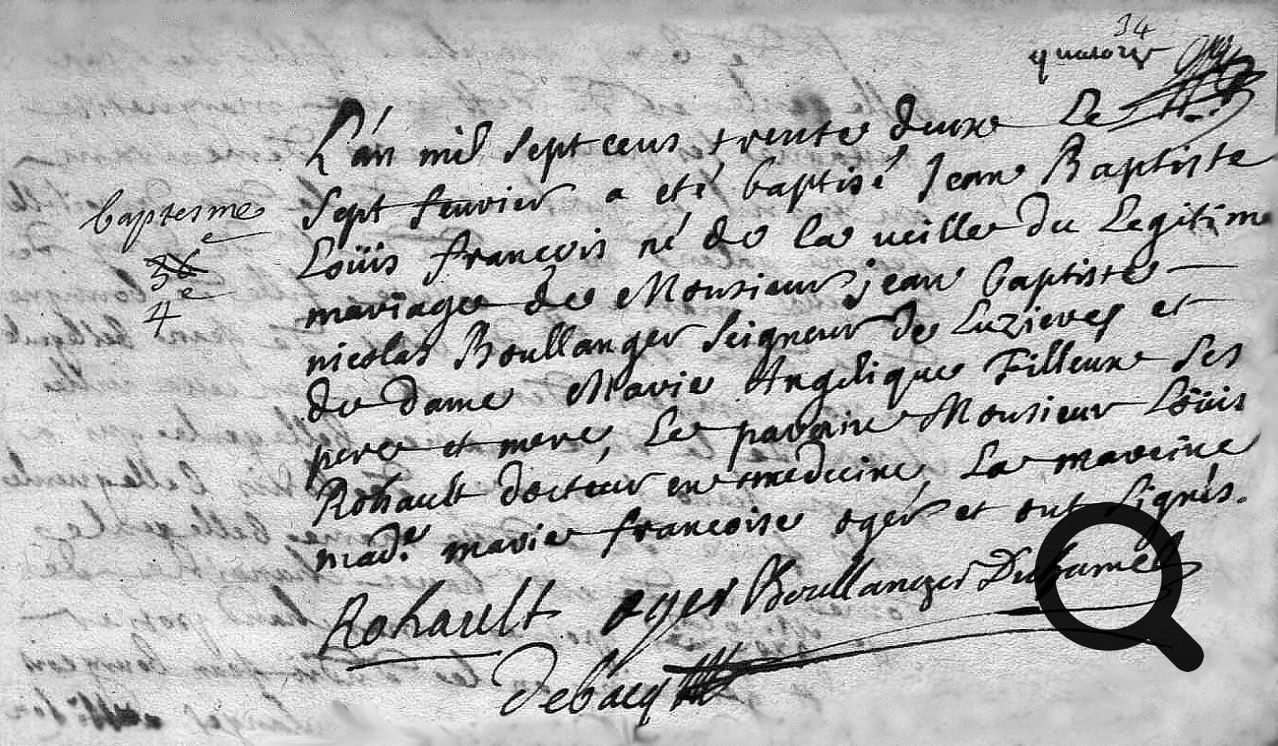 14
quatorze
L'an mil sept cens trente deux Le
Sept feuvrier a eté baptisé Jean Baptiste
baptesme
Loüis francois né de la veille du Legitime
36
4e
mariage de Monsieur jean baptiste
nicolas Boullanger Seigneur de Luzieres et
de dame Marie Angelique Filleux Ses
pere et mere, Le paraine Monsieur Loüis
Rohault docteur en medecine, La mareine
made. marie francoise oger et ont Signés.
Rohault oger Boullanger Duhamel
Debacq